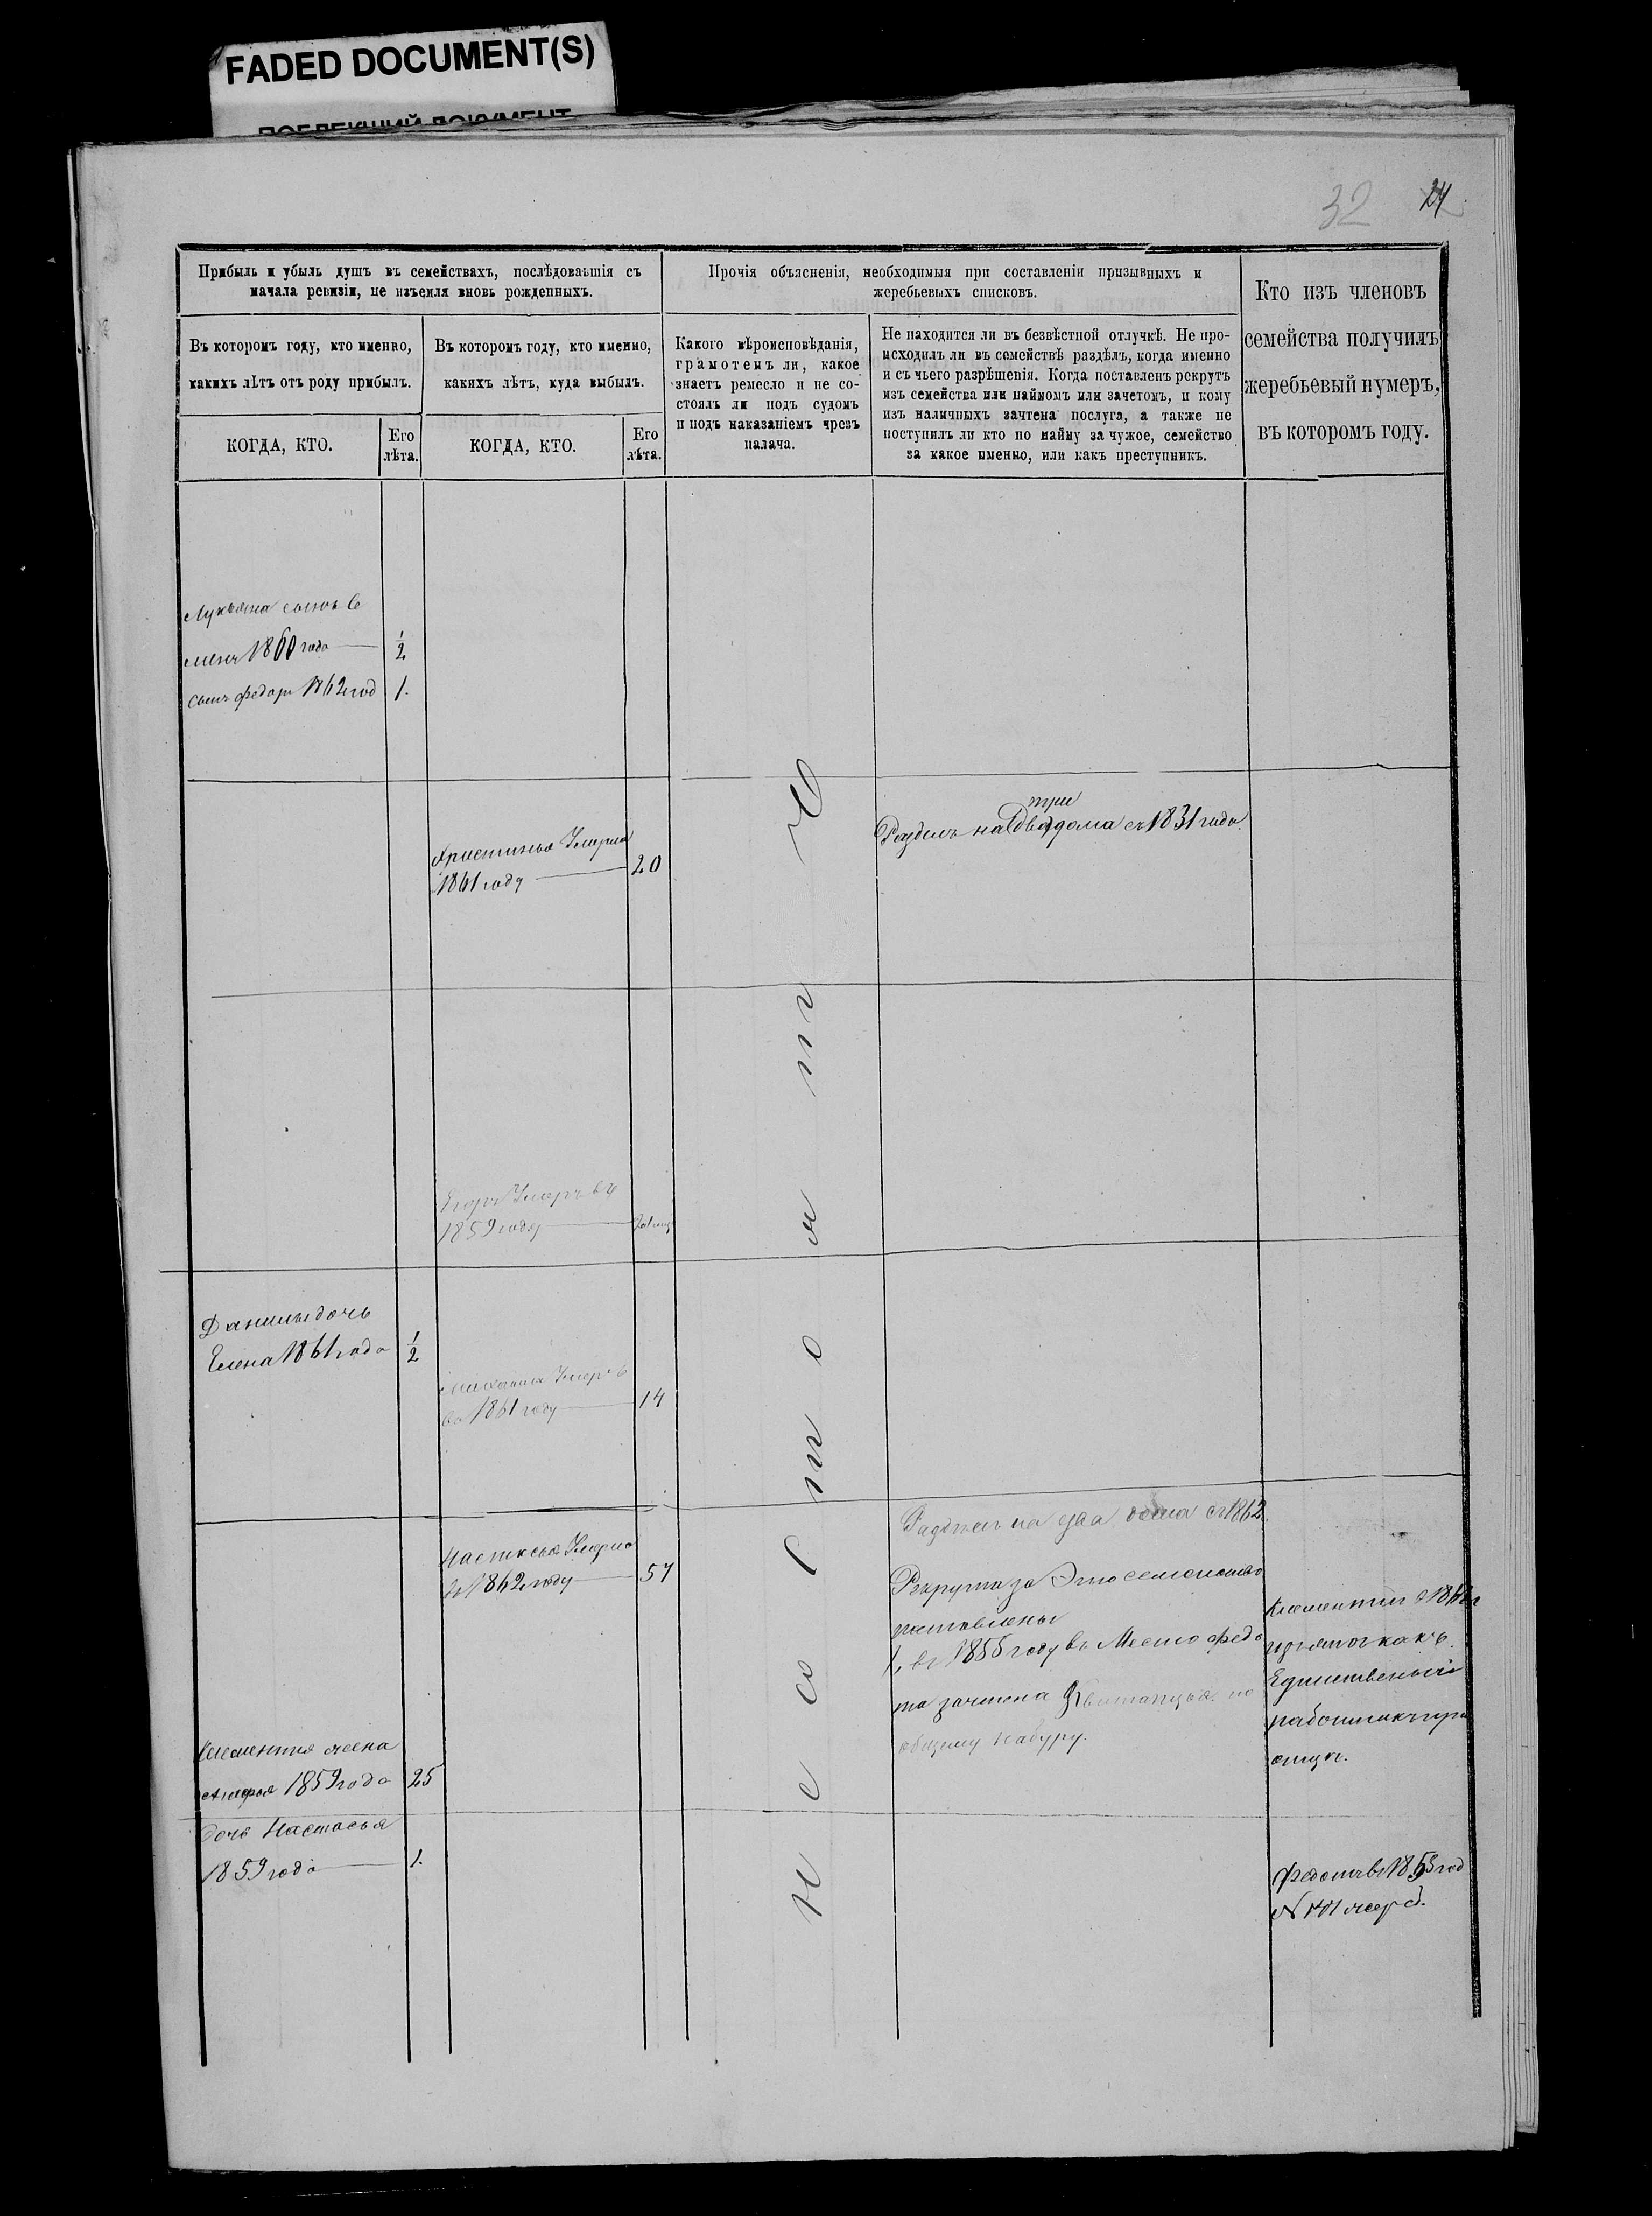 FADED DOCUMENT(S)
32 24
Прибыль и убыль душъ въ семействахъ, послѣдовавшія съ
начала ревизіи, не изъемля вновь рожденныхъ.
Въ которомъ году, кто именно,
какихъ лѣтъ отъ роду прибылъ.
КОГДА, КТО.
Его
лѣта.
Въ которомъ году, кто именно,
какихъ лѣтъ, куда выбылъ.
КОГДА, КТО.
Его
лѣта.
Прочія объясненія, необходимыя при составленіи призывныхъ и
жеребьевыхъ списковъ.
Какого вѣроисповѣданія,
грамотенъ ли, какое
знаетъ ремесло и не со-
стоялъ ли подъ судомъ
и подъ наказаніемъ чрезъ
палача.
Не находится ли въ безвѣстной отлучкѣ. Не про-
исходилъ ли въ семействѣ раздѣлъ, когда именно
и съ чьего разрѣшенія. Когда поставленъ рекрутъ
изъ семейства или наймомъ или зачетомъ, и кому
изъ наличныхъ зачтена послуга, а также не
поступилъ ли кто по найму за чужое, семейство
за какое именно, или какъ преступникъ.
Кто изъ членовъ
семейства получилъ
жеребьевый нумеръ,
въ которомъ году.
Лукьяна сынъ Се
менъ 1860 года 1/2
сынъ Федоръ 1862 год 1.
Христинья Умерла
1861 году 20
три
Разделъ на два дома съ 1831 года.
Егоръ Умеръ въ
1859 году
Данилы дочь
Елена 1861 года 1/2
Михаила Умеръ
въ 1861 году 14
Настасья Умерла
въ 1862 году 57
Разделъ на два дома съ 1862.
Рекрута за Это семейство
поставлены
1, въ 1855 году въ Место Федо
та зачтена Квитанция по
общему набору.
Клементий
изъятъ какъ
Единственный
работникъ при
отце.
Клементия жена
1859 года 25
дочь Настасья
1859 года 1.
Федотъ въ 1853 год